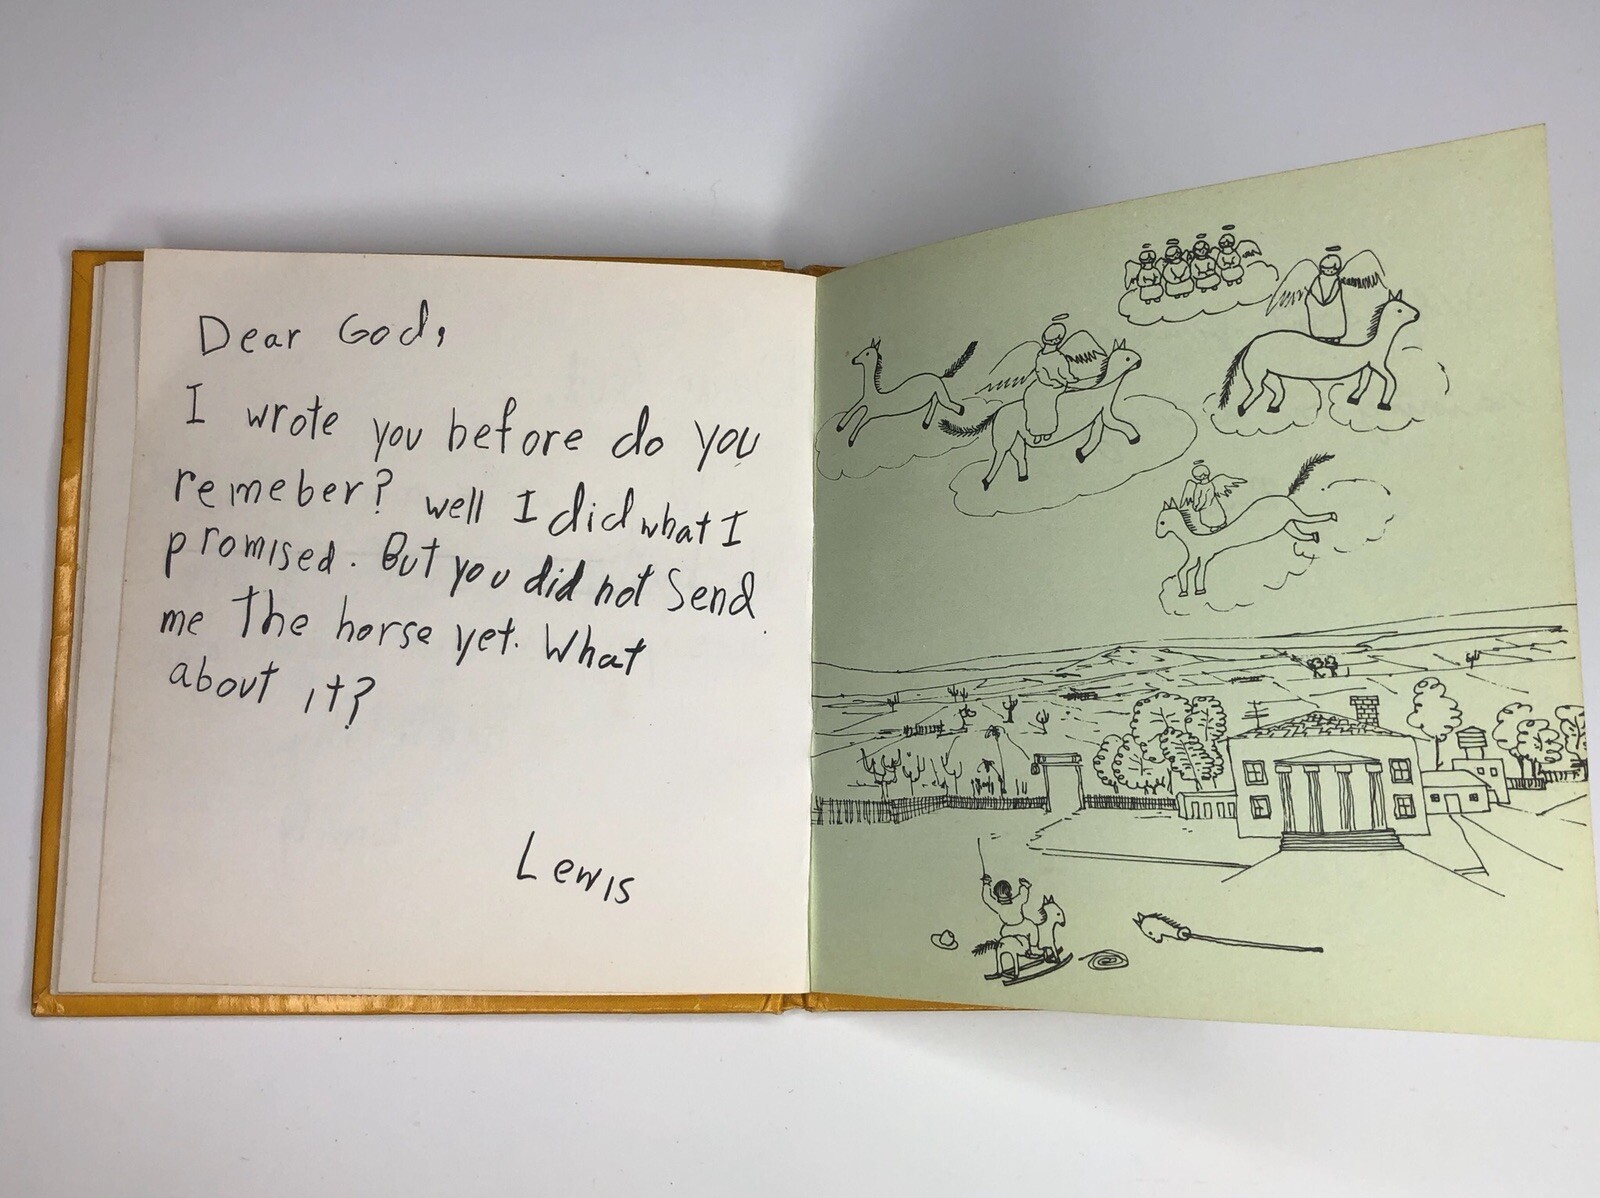 Dear God,
I wrote you before do you
remeber? well I did what I
promised. But you did not Send
me The horse yet. What
about it?
Lewis